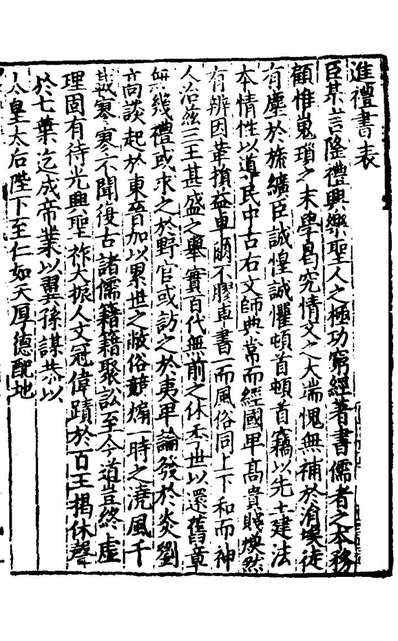 進禮書表
臣某言隆禮興樂聖人之極功窮經著書儒者之本務
顧惟嵬瑣之末學曷究情文之大端愧無補於涓埃徒
有塵於旒纊臣誠惶誠懼頓首頓首竊以先王建法
本情性以道民中古右文師典常而經國卑高貴賤煥然
有辨因革損益卓爾不膠車書一而風俗同上下和而神
人洽茲三王甚盛之舉實百代無前之休去世以還舊章
無幾禮或求之於野官或訪之於夷卑論發於炎劉
高談起於東晉加以累世之敝俗競煽一時之澆風千
載寥寥不聞復古諸儒籍籍聚訟至今道豈終虛
理固有待光興聖祚大振人文冠偉蹟於百王揭休聲
於七葉迄成帝業以翼孫謀恭以
太皇太后陛下至仁如天厚德配地